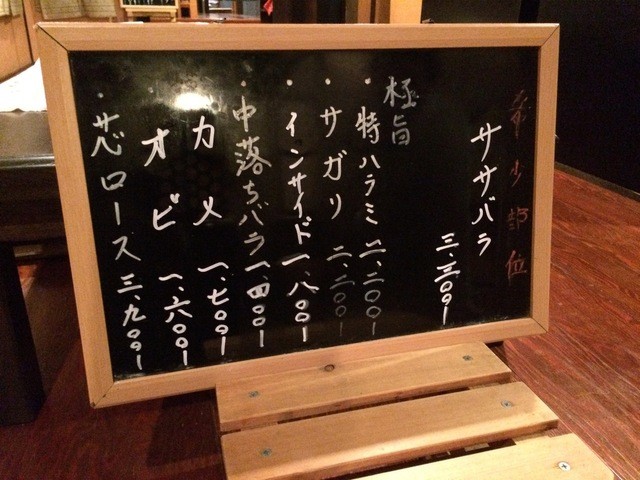 希少部位
ササバラ
三、三〇〇ー
極旨
・特ハラミ 二、二〇〇ー
・サガリ 二、二〇〇ー
・インサイド 一、八〇〇ー
・中落ちバラ 一、四〇〇ー
・カメ 一、七〇〇ー
・オビ 一、六〇〇ー
・芯ロース 三、九〇〇ー